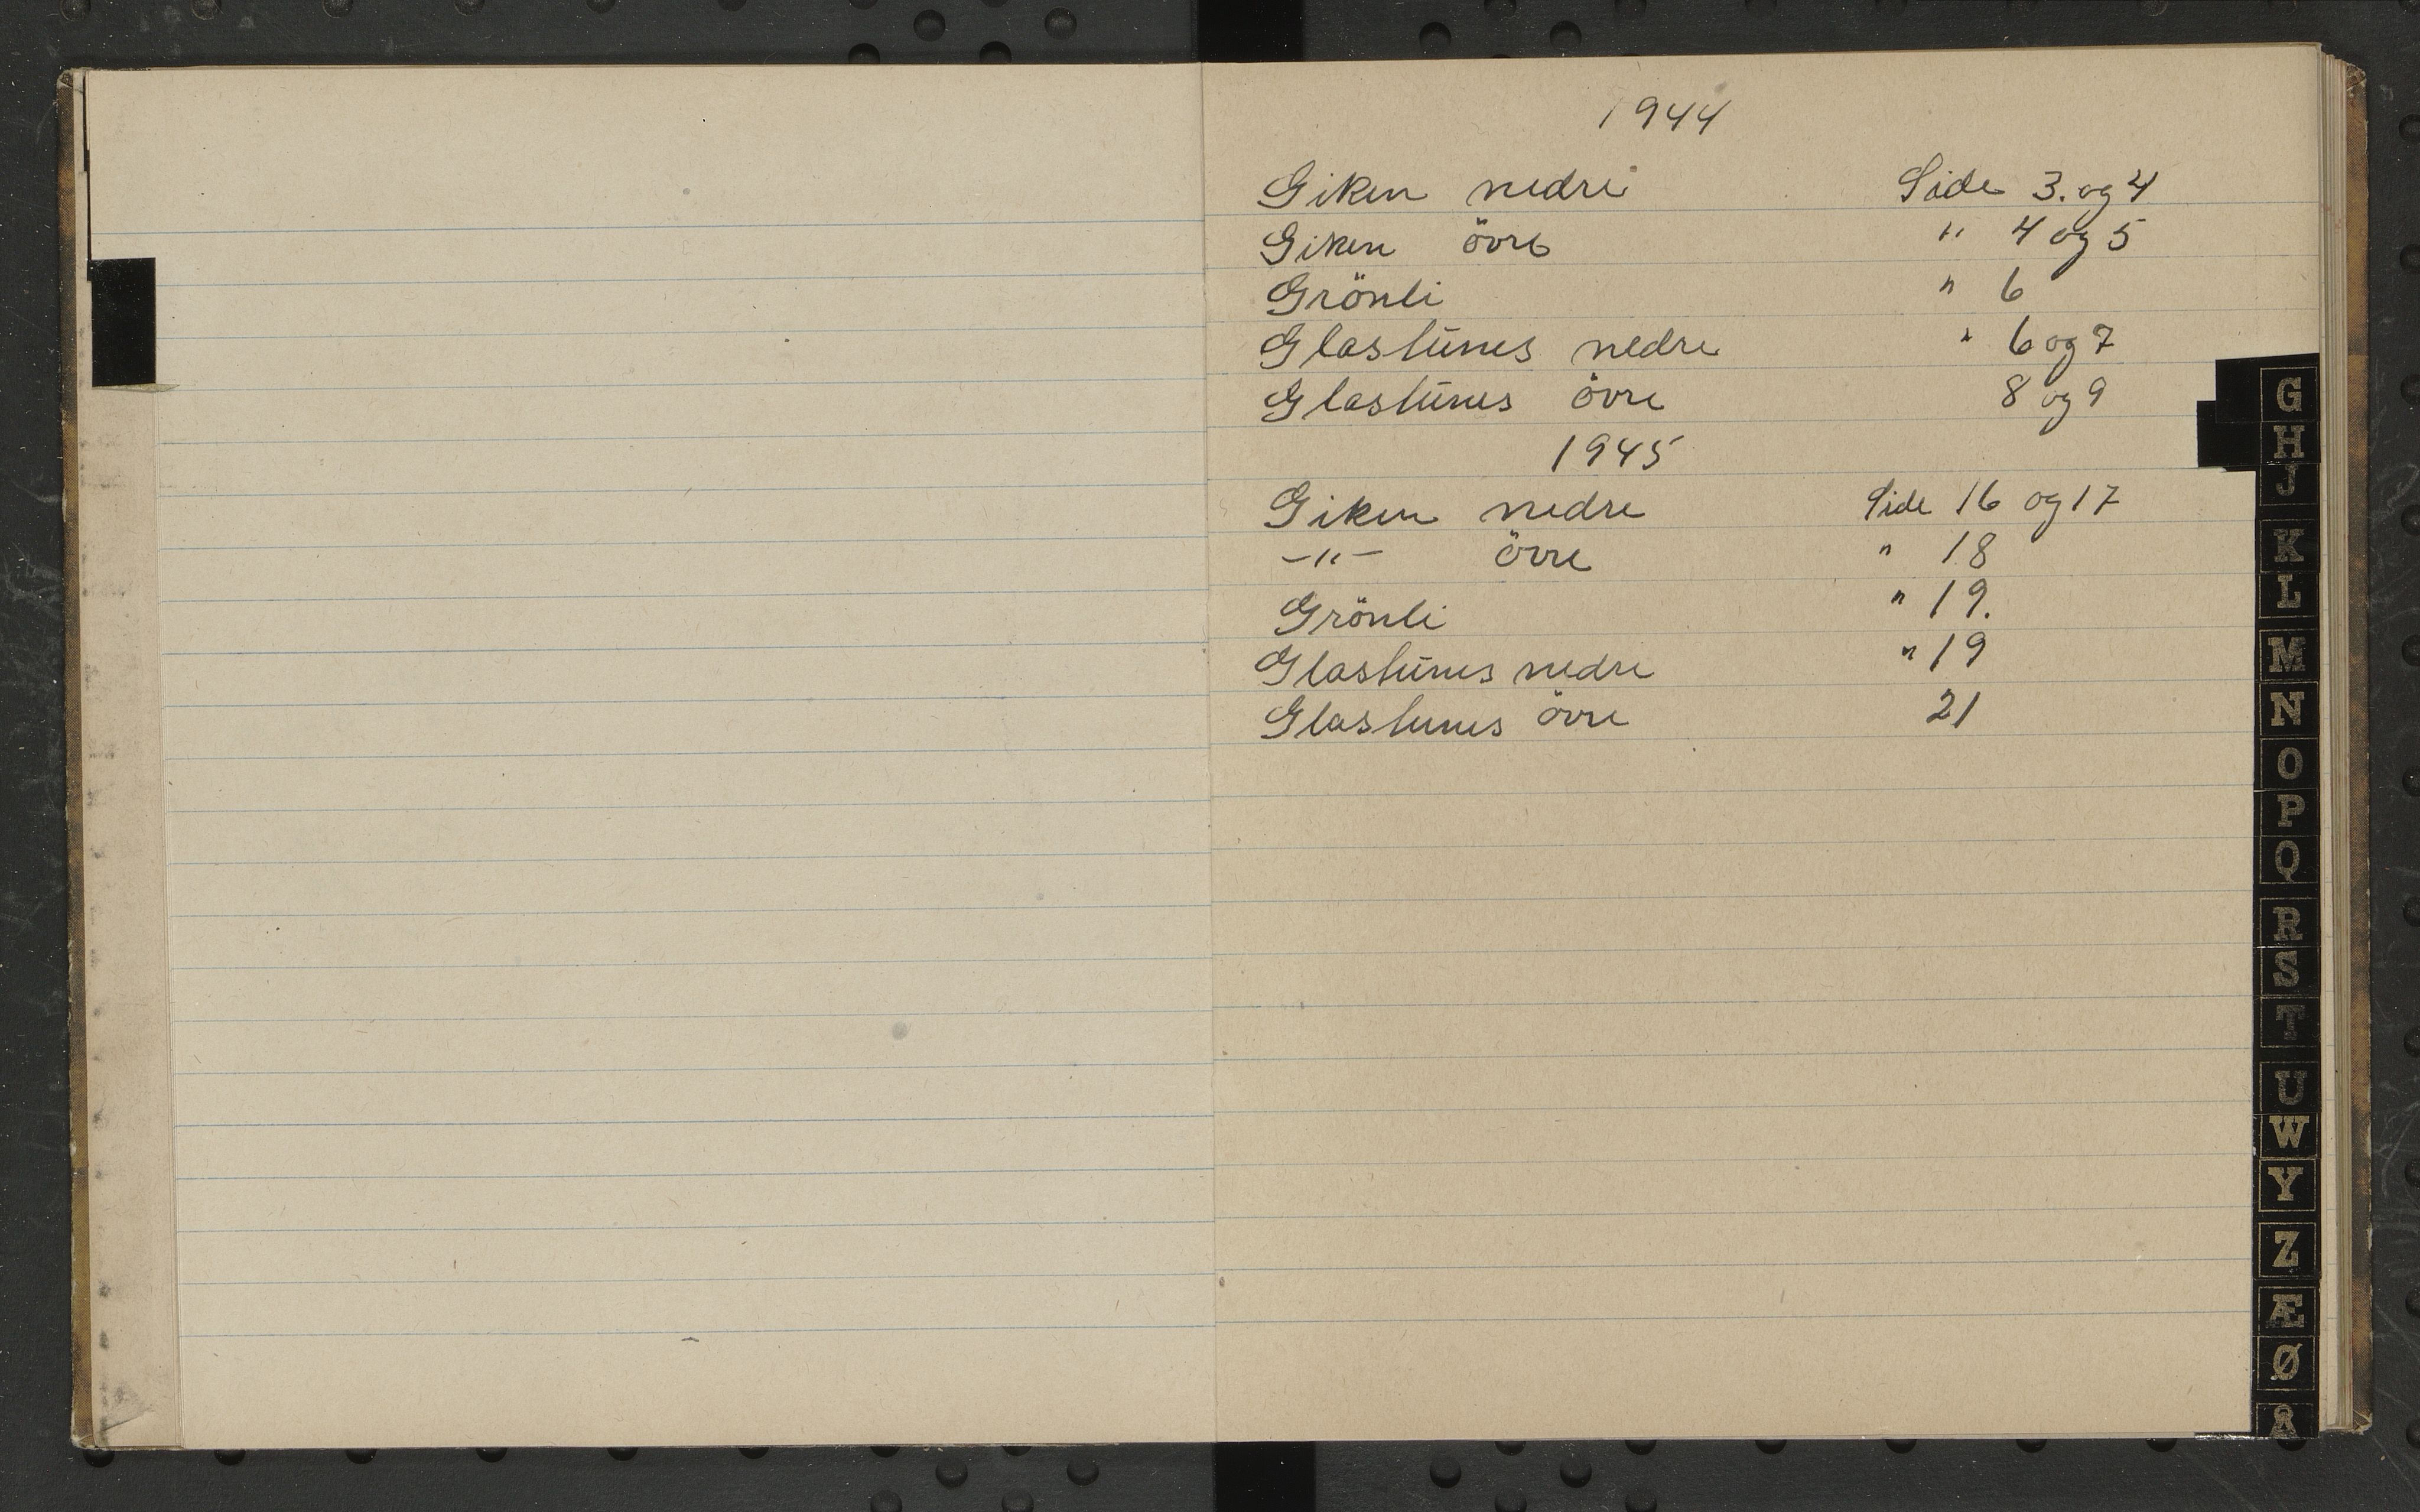 1944
Giken nedre Side 3. og 4
Giken övre " 4 og 5
Grönli " 6
Glastunes nedre " 6 og 7
Glastunes övre 8 og 9
1945
Giken nedre Side 16 og 17
-"- övre " 18
Grönli " 19.
Glastunes nedre " 19
Glastunes övre 21
G
H
J
K
L
M
N
O
P
Q
R
S
T
U
W
Y
Z
Æ
Ø
Å